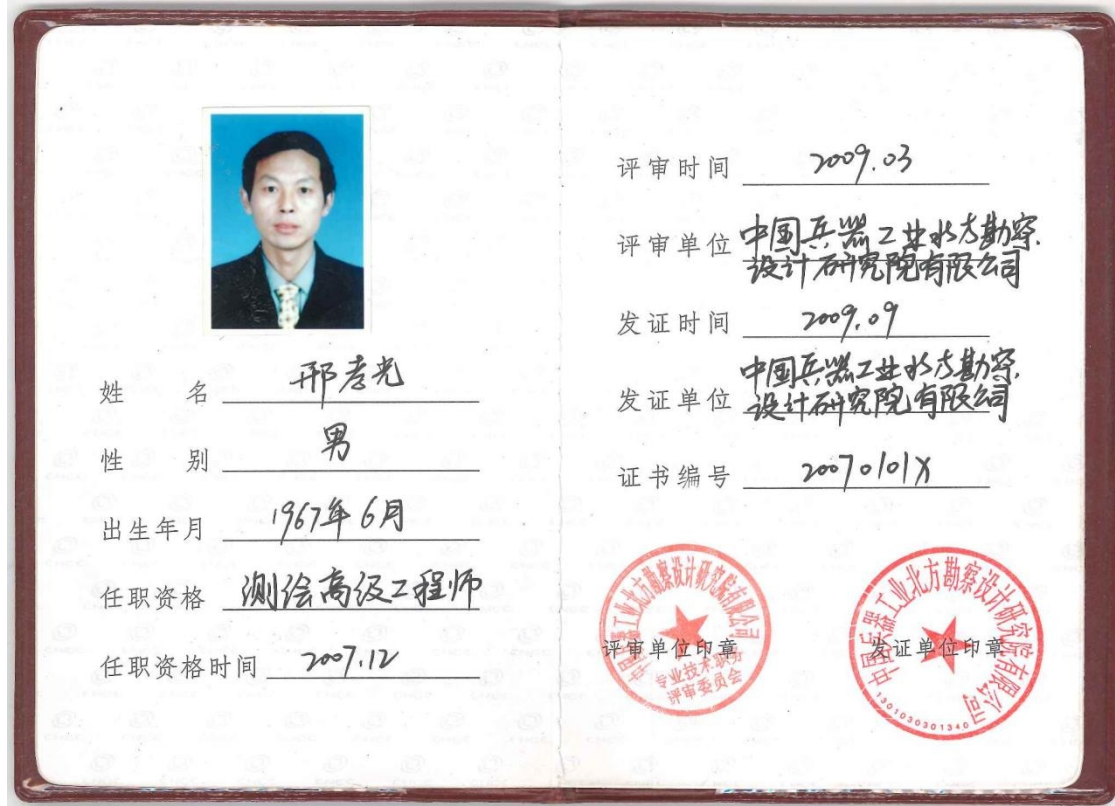 姓 名 邢孝光
性 别 男
出生年月 1967年6月
任职资格 测绘高级工程师
任职资格时间 2007.12
评审时间 2009.03
评审单位 中国兵器工业北方勘察
设计研究院有限公司
发证时间 2009.09
发证单位 中国兵器工业北方勘察
设计研究院有限公司
证书编号 20070101X
中国兵器工业北方勘察设计研究院有限公司
评审单位印章
专业技术职务
评审委员会
中国兵器工业北方勘察设计研究院有限公司
发证单位印章
1301030301340